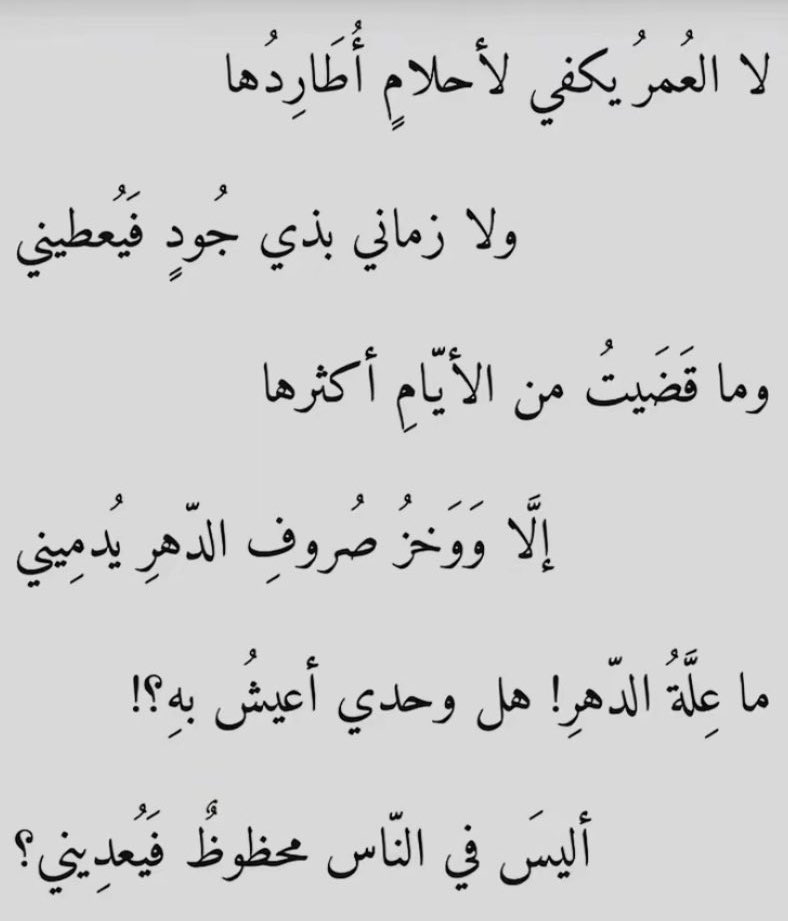 لا العُمرُ يكفي لأحلامٍ أُطَارِدُها
ولا زماني بذي جُودٍ فَيُعطيني
وما قَضَيتُ من الأيّامِ أكثرها
إلَّا وَوَخزُ صُروفِ الدّهرِ يُدمِيني
ما عِلَّةُ الدّهرِ! هل وحدي أعيشُ بهِ؟!
أليسَ في النّاس محظوظٌ فَيُعدِيني؟